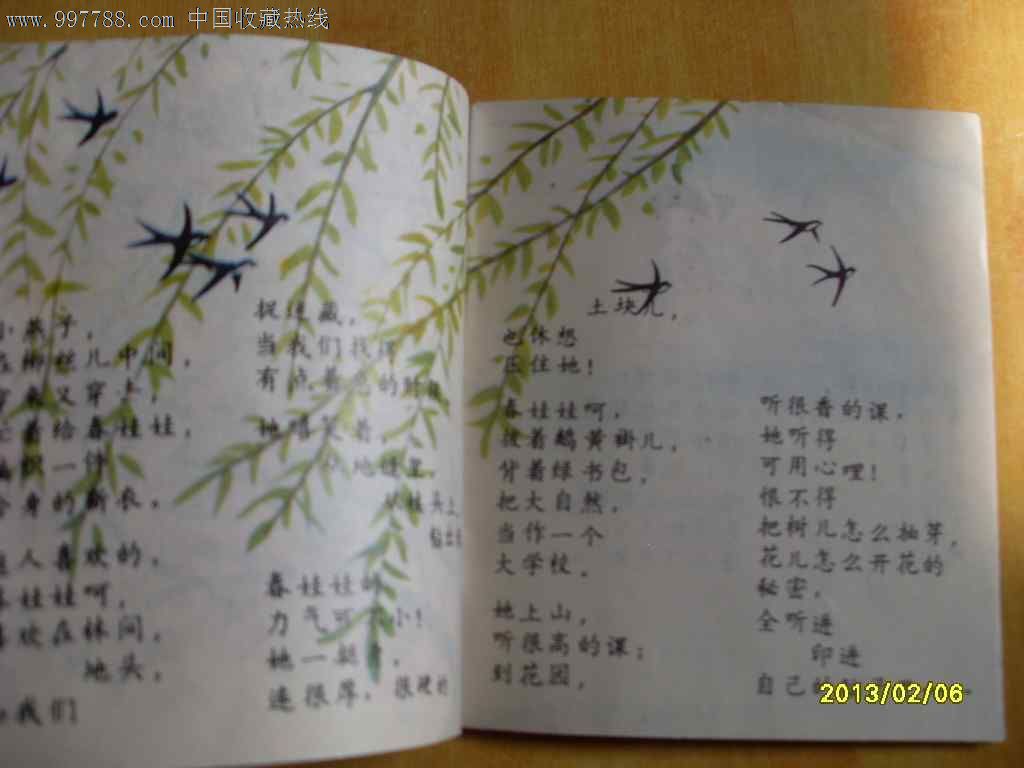 www.997788.com 中国收藏热线
小燕子，
在柳丝儿中间，
穿来又穿去，
忙着给春娃娃，
编织一件
合身的新衣。
人喜欢的，
春娃娃呵，
喜欢在林间，
地头，
我们
捉迷藏，
当我们找得
有点着急的时候，
她嘻笑着，
地缝里，
从枝头上，
钻出
春娃娃的
力气可 小！
她一挺 ，
连很厚，很硬的
土块儿，
也休想
压住她！
春娃娃呵，
披着鹅黄褂儿，
背着绿书包，
把大自然，
当作一个
大学校。
她上山，
听很高的课；
到花园，
听很香的课，
她听得
可用心哩！
恨不得
把树儿怎么抽芽，
花儿怎么开花的
秘密，
全听进
印进
自己的
2013/02/06